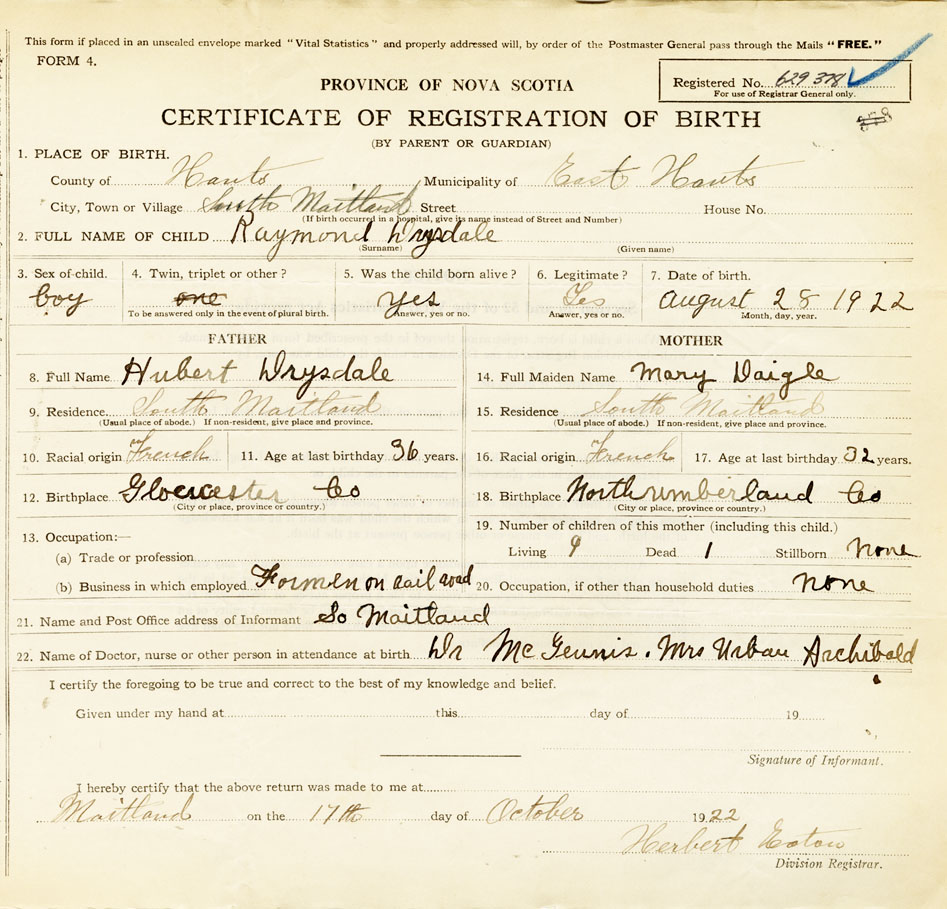 This form if placed in an unsealed envelope marked "Vital Statistics" and properly addressed will, by order of the Postmaster General pass through the Mails "FREE."
FORM 4.
Registered No. 629378
For use of Registrar General only.
PROVINCE OF NOVA SCOTIA
CERTIFICATE OF REGISTRATION OF BIRTH
(BY PARENT OR GUARDIAN)
1. PLACE OF BIRTH.
County of Hants Municipality of East Hants
City, Town or Village South Maitland Street House No.
(If birth occurred in a hospital, give its name instead of Street and Number)
2. FULL NAME OF CHILD Raymond Drysdale
(Surname) (Given name)
3. Sex of child. 4. Twin, triplet or other? 5. Was the child born alive? 6. Legitimate? 7. Date of birth.
boy one yes Yes August 28 1922
To be answered only in the event of plural birth. Answer, yes or no. Answer, yes or no. Month, day, year.
FATHER MOTHER
8. Full Name Hubert Drysdale 14. Full Maiden Name Mary Daigle
9. Residence. South Maitland 15. Residence South Maitland
(Usual place of abode.) If non-resident, give place and province. (Usual place of abode.) If non-resident, give place and province.
10. Racial origin French 11. Age at last birthday 36 years. 16. Racial origin French 17. Age at last birthday 32 years.
12. Birthplace Gloescester Co 18. Birthplace Northumberland Co
(City or place, province or country.) (City or place, province or country.)
13. Occupation:— 19. Number of children of this mother (including this child.)
(a) Trade or profession Living 9 Dead 1 Stillborn None
(b) Business in which employed Formen on rail road 20. Occupation, if other than household duties none
21. Name and Post Office address of Informant So Maitland
22. Name of Doctor, nurse or other person in attendance at birth Dr McGennis. Mrs Urban Archibald
I certify the foregoing to be true and correct to the best of my knowledge and belief.
Given under my hand at this day of 19
Signature of Informant.
I hereby certify that the above return was made to me at
Maitland on the 17th day of October 1922
Herbert Eaton
Division Registrar.